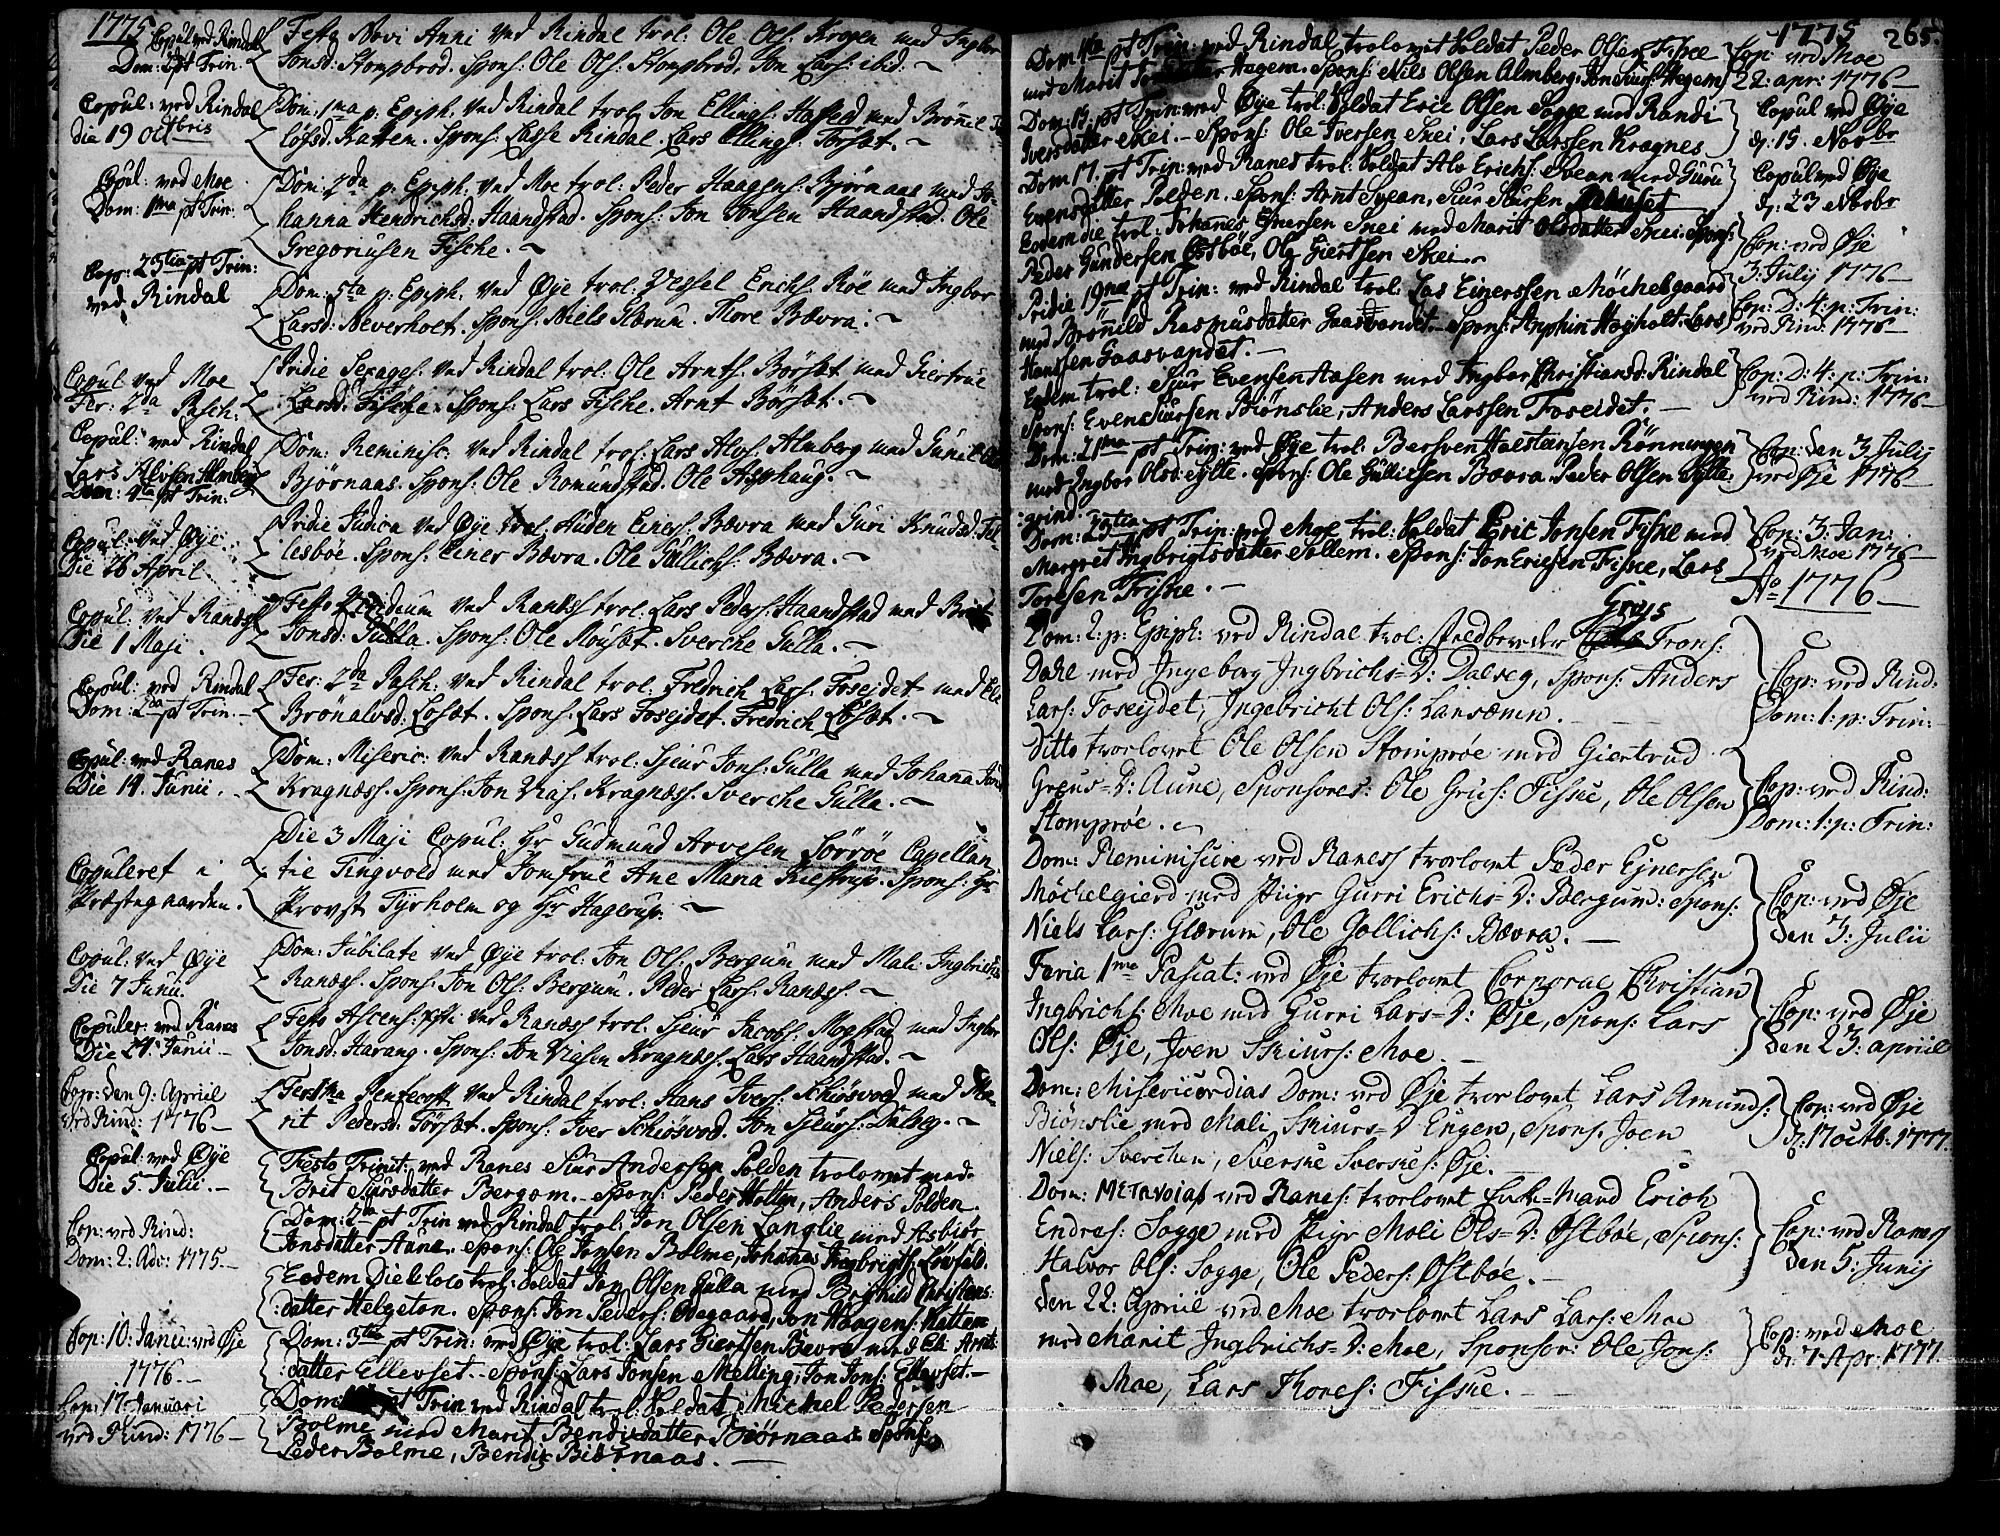 1775
Copul: ved Rindal
Dom: 2 pt Trin:
Festo Novi Anni ved Rindal trol: Ole Ols: Kropen med Ingbor
Jonsd: Stompbrod. Spons: Ole Ols: Stompbrod, Jon Lars: ibid: ~
Copul: ved Rindal
die 19 Octbris
Dom: 1ma p: Epiph: ved Rindal trol: Jon Ellings: med Brönil
löfsd. Katten. Spons: Lasse Rindal. Lars Ellings: Torsæt. ~
Copul: ved Moe
Dom: 1ma pt Trin:
Dom: 2da p: Epiph: ved Moe trol: Peder Haagens: Bjørnaas med Jo-
hanna Hendrichsd: Haandstad. Spons: Jon Jonsen Haandstad. Ole
Gregoriusen Fische. ~
Cop: 23tia pt Trin:
ved Rindal
Dom: 5ta p: Epiph: ved Øye trol: Vessel Erichs: Röe med Ingbor
Larsd: Neverholt. Spons: Niels Glærum. Thore Bævra: ~
Copul ved Moe
Fer: 2da Pasch:
Pridie Sexages: ved Rindal trol: Ole Arnts: Börsæt med Giertrue
Larsd: Fische. Spons: Lars Fische. Arnt Börsæt. ~
Copul: ved Rindal
Lars Alvsen Almberg
Dom: 4ta pt Trin:
Dom: Reminisc: ved Rindal trol: Lars Alvs: Almberg med Gunil
Bjørnaas. Spons: Ole Romundstad. Ole Asphaug. ~
Copul: ved Øye
Die 26 April
Pridie Judica ved Øye trol: Auden Einers: Bævra med Guri Knudsd: Til-
lesböe. Spons: Einer Bævra. Ole Gullichs: Bævra. ~
Copul: ved Ranæs
Die 1 Maji.
Festo ved Ranæs trol: Lars Peders: Haandstad med Brit
Jonsd: Gulla. Spons: Ole Mousæt. Sverche Gulla. ~
Copul: ved Rindal
Dom: 2da pt Trin. -
Fer: 2da Pasch. ved Rindal trol: Fredrich Lars: Fosejdet med Ele
Brönalvsd: Losæt. Spons: Lars Fosejdet. Fredrich Lösæt. ~
Copul: ved Ranes
Die 14. Junii.
Dom: Miseric: ved Ranæs trol: Sjeur Jons: Gulla med Johana
Kragnæs. Spons: Jon Kragnæs. Sverche Gulla. ~
Copuleret i
Præstegaarden.
Die 3 Maji Copul: Hr Gudmund Arvesen Sörröe Capellan
tie Tingvold med Jomfrue Ane Maria Kiestrup. Spons: Hr
Provst Tyrholm og Hr Hagerup. ~
Copul: ved Øye
Die 7 Junii.
Dom: Jubilate ved Øye trol: Jon Ols: Bergum med Mali Ingbrichs:
Ranæs. Spons: Jon Ols: Bergum. Peder Lars: Ranæs. ~
Copuler: ved Ranæs
Die 24. Junii -
Festo Ascens: Xsti ved Ranæs trol: Sjeur Jacobs: Mogstad med Ingbor
Jonsd: Harang. Spons: Jon Kragnæs. Lars Haandstad. ~
Cop: den 9. Apriil
ved Rind: 1776 -
Fer: 1ma Pentecost ved Rindal trol: Hans Ivers: Schiösvod med Ma-
rit Pedersd: Törsæt. Spons: Iver Schiösvod. Jon Sjeurs: Dalseg. ~
Copul: ved Øye
Die 5 Julii. -
Festo Trinit: ved Ranes Siur Andersen Polden trolovet med
Brit Siursdatter Bergom. - Spons: Peder Holten, Anders Polden.
Cop: ved Rind:
Dom: 2: Adv: 1775. -
Dom: 2da pt Trin ved Rindal trol: Jon Olsen Langlie med Asbiør
Jonsdatter Aune. Spons: Ole Jonsen Bolme, Johannes Ingbrigts:
Eodem Die & loco trol: Soldat Jon Olsen Gulla med Brynild Christens:
:datter Helgeton. Spons: Jon Peders: Ødegaard, Jon Haagens: Hatten
Cop: 10: Janu: ved Øje
1776. -
Dom: 3tia pt Trin: ved Øye trol: Lars Giertsen Bævra med Eli Arnts:
:datter Ellevset. - Spons: Lars Jonsen Melling, Jon Jons: Ellevset. -
Cop: 17: Januari
ved Rind: 1776 -
Dom pt Trin ved Rindal trol: Soldat Michel Pedersen
Bolme med Marit Bendixdatter Biørnaas Spons:
Peder Bolme, Bendix Biørnaas. -
1775 265.
Dom pt Trin: ved Rindal trolovet Soldat Peder Olsen Fiske
med Marit Hagem. Spons: Nils Olsen Almberg, Jon Siurs: Hagem
Cop: ved Moe
22: apr: 1776 -
Dom: 15. pt Trin: ved Øye trol: Soldat Eric Olsen Sogge med Randi
Iversdatter Skei. - Spons: Ole Iversen Skei, Lars Larssen Kragnes.
Copul ved Øye
d: 15. Novbr
Dom 17. pt Trin: ved Ranes trol: Soldat Alv Erichs: Svean med Guru
Evensdatter Polden. Spons: Arnt Svean, Siur Siursen
Copul ved Øye
d: 23 Novbr
Eodem die trol: Johanes Ennersen Skei med Marit Olsdatter Skei. Spons:
Peder Gundersen Østböe, Ole Giertsen Skei.
Cop: ved Øje
3: Julij 1776 -
Pridie 19na pt Trin: ved Rindal trol: Las Einerssen Möchelgaard
med Brönild Rasmusdatter Gaasvandet. Spons: Apphin Høyholt, Lars
Hanssen Gaasvandet. -
Cop: D: 4: p: Trin:
ved Rind: 1776 -
Eodem trol: Siur Evensen Aasen med Ingbor Christiansd: Rindal
Spons: Even Siursen Biønslie, Anders Larssen Foseidet. -
Cop: D: 4: p: Trin:
ved Rind: 1776 -
Dom: 21ma pt Trin: ved Øye trol: Bersven Halstensen Rönningen
med Ingbor Olsd: Sylte. Spons: Ole Gullichsen Bævra. Peder Olsen Sylte
:grind. -
Cop: den 3 Julij
ved Øje 1776
Dom: 23tia pt Trin: ved Moe trol: Soldat Eric Jonsen Fiske med
Margret Ingbrigtsdatter Sollem. Spons: Jon Ericsen Fiske, Lars
Toresen Friske. -
Cop: 3: Jan:
ved Moe 1776 -
Ao 1776 -
Greys
Dom: 2: p: Epiph: ved Rindal trol: Frons:
Dahl med Ingeborg Ingbrichs=D: Dalseg, Spons: Anders
Lars: Foseydet, Ingebricht Ols: Lansæmn. -
Cop: ved Rind:
Dom: 1: p: Trin:
Ditto trolovet Ole Olsen Stomprøe med Giertrud
Greus=D: Aune, Sponsores: Ole Grus: Fiske, Ole Olsen
Stomprøe.
Cop: ved Rind:
Dom: 1: p: Trin:
Dom: Reminisiere ved Ranes trolovet Peder Ejnersen
Möchelgierd med Piige Gurri Erichs=D: Bergum: Spons:
Niels Lars: Glærum, Ole Gollichs: Bævra. -
Cop: ved Øje
den 3: Julii
Faria 1ma Pascat: ved Øje trolovet Corporal Christian
Ingbrichs: Moe med Gurri Lars=D: Øje, Spons: Lars
Ols: Øje, Joen Skiurs: Moe. -
Cop: ved Øje
den 23: apriil
Dom: Misericordias Dom: ved Øje trolovet Lars Amunds:
Biönslie med Mali Skiurs=D Engen, Spons: Joen
Niels: Sverchen, Sverke Sverkes: Øje.
Cop: ved Øje
d: 17 octb: 1777.
Dom: ved Ranes: trolovet Enke=Mand Erich
Endres: Sogge med Piige Moli Ols=D: Østbøe, Spons:
Halvor Ols: Sogge, Ole Peders: Østbøe. -
Cop: ved Ranes
den 5: Junij
den 22: Apriil ved Moe trolovet Lars Lars: Moe
med Marit Ingbrichs=D: Moe, Sponsor: Ole Jons:
Moe, Lars Thores: Fiske. -
Cop: ved Moe
d: 7 Apr: 1777.